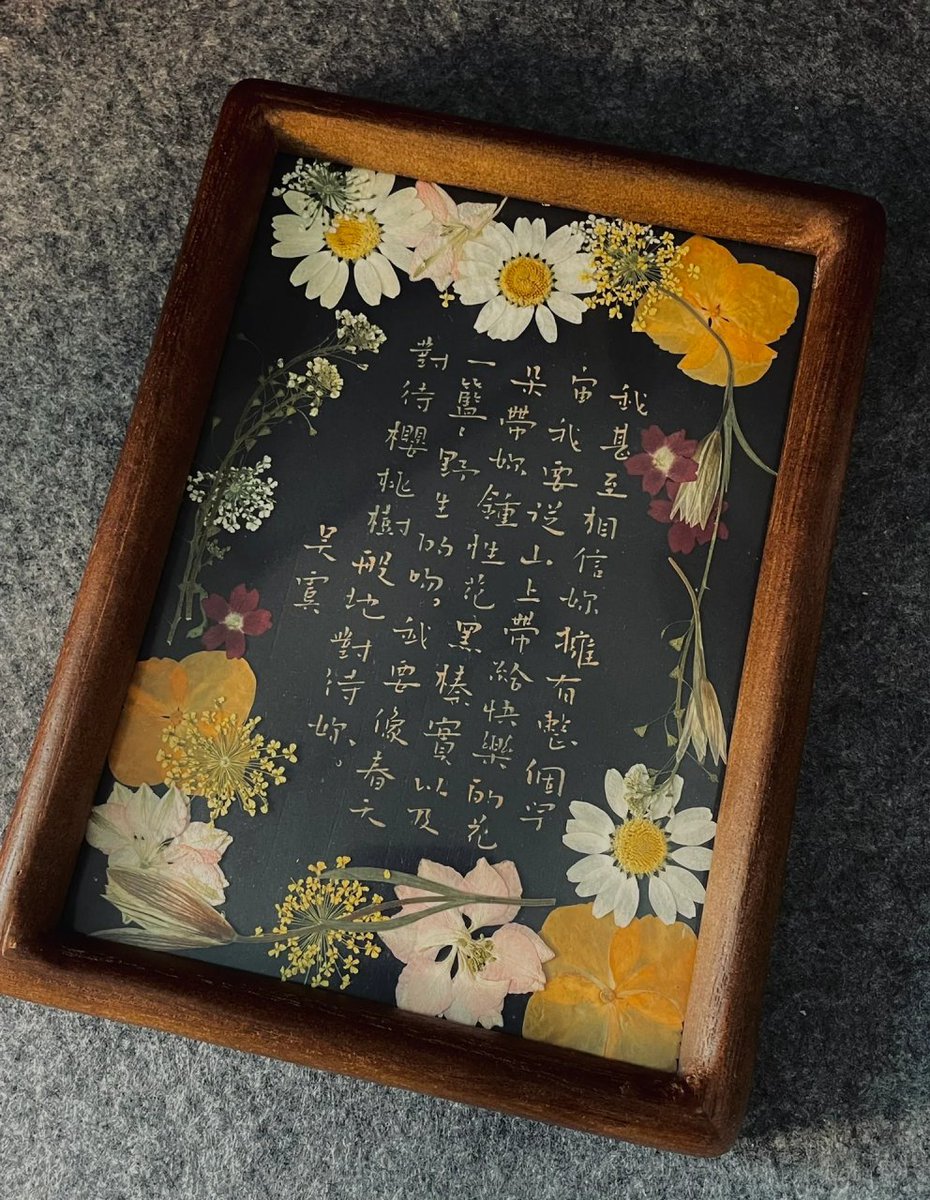 我甚至相信妳擁有整個宇
宙 我要從山上帶給快樂的花
朵帶妳鍾性花黑榛實以及
一籃〻野生的吻。我要像春天
對待櫻桃樹般地對待妳。
吳寞